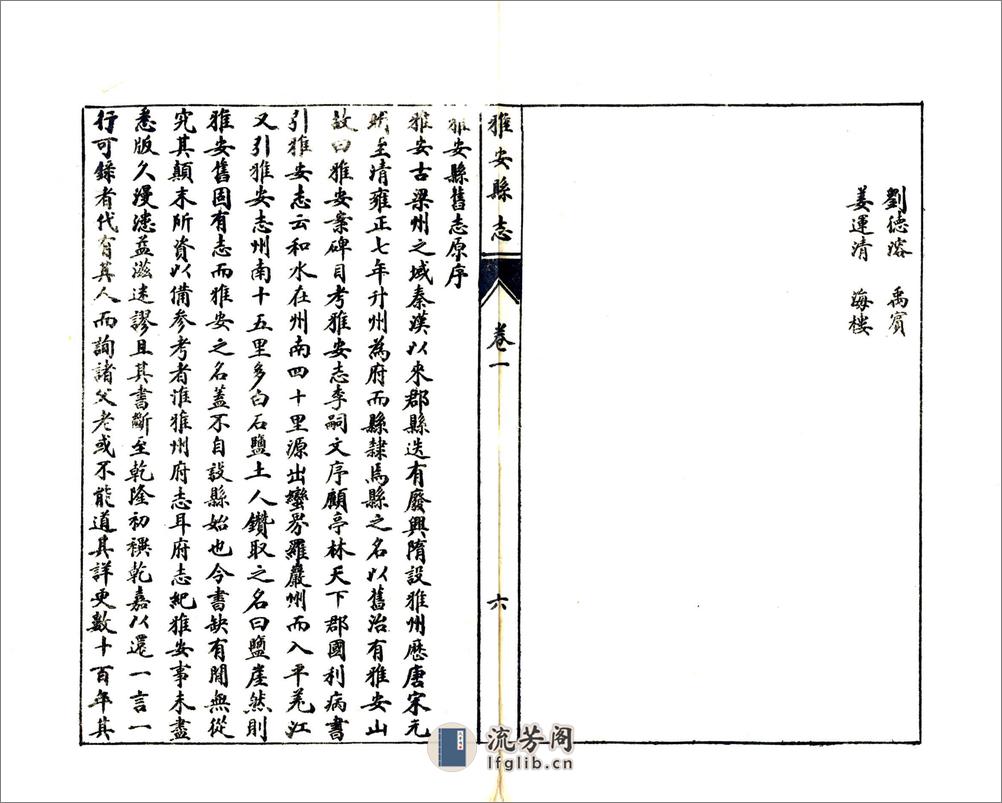 劉德濬　禹賓
姜運清　海樓
雅安縣志　卷一　六
雅安縣舊志原序
雅安古梁州之域秦漢以來郡縣迭有廢興隋設雅州歷唐宋元
明至清雍正七年升州為府而縣隸焉縣之名以舊治有雅安山
故曰雅安案碑目考雅安志李嗣文序顧亭林天下郡國利病書
引雅安志云和水在州南四十里源出蠻界羅巖州而入平羌江
又引雅安志州南十五里多白石鹽土人鑽取之名曰鹽崖然則
雅安舊固有志而雅安之名蓋不自設縣始也今書缺有間無從
究其顛末所資以備參考者惟雅州府志耳府志紀雅安事未盡
悉版久漫漶益滋遠謬且其書斷至乾隆初禩乾嘉以還一言一
行可錄者代有其人而詢諸父老或不能道其詳更數十百年其
流芳阁
lfglib.cn